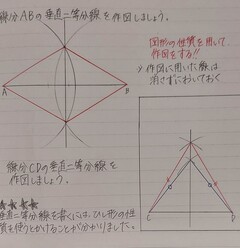 線分ABの垂直二等分線を作図しましょう。
図形の性質を用いて
作図をする!!
→作図に用いた線は
消さずにおいておく
A
B
線分CDの垂直二等分線を
作図しましょう。
C
D
★★★★
垂直二等分線を書くには、ひし形の性
質を使うとかけることが分かりました。